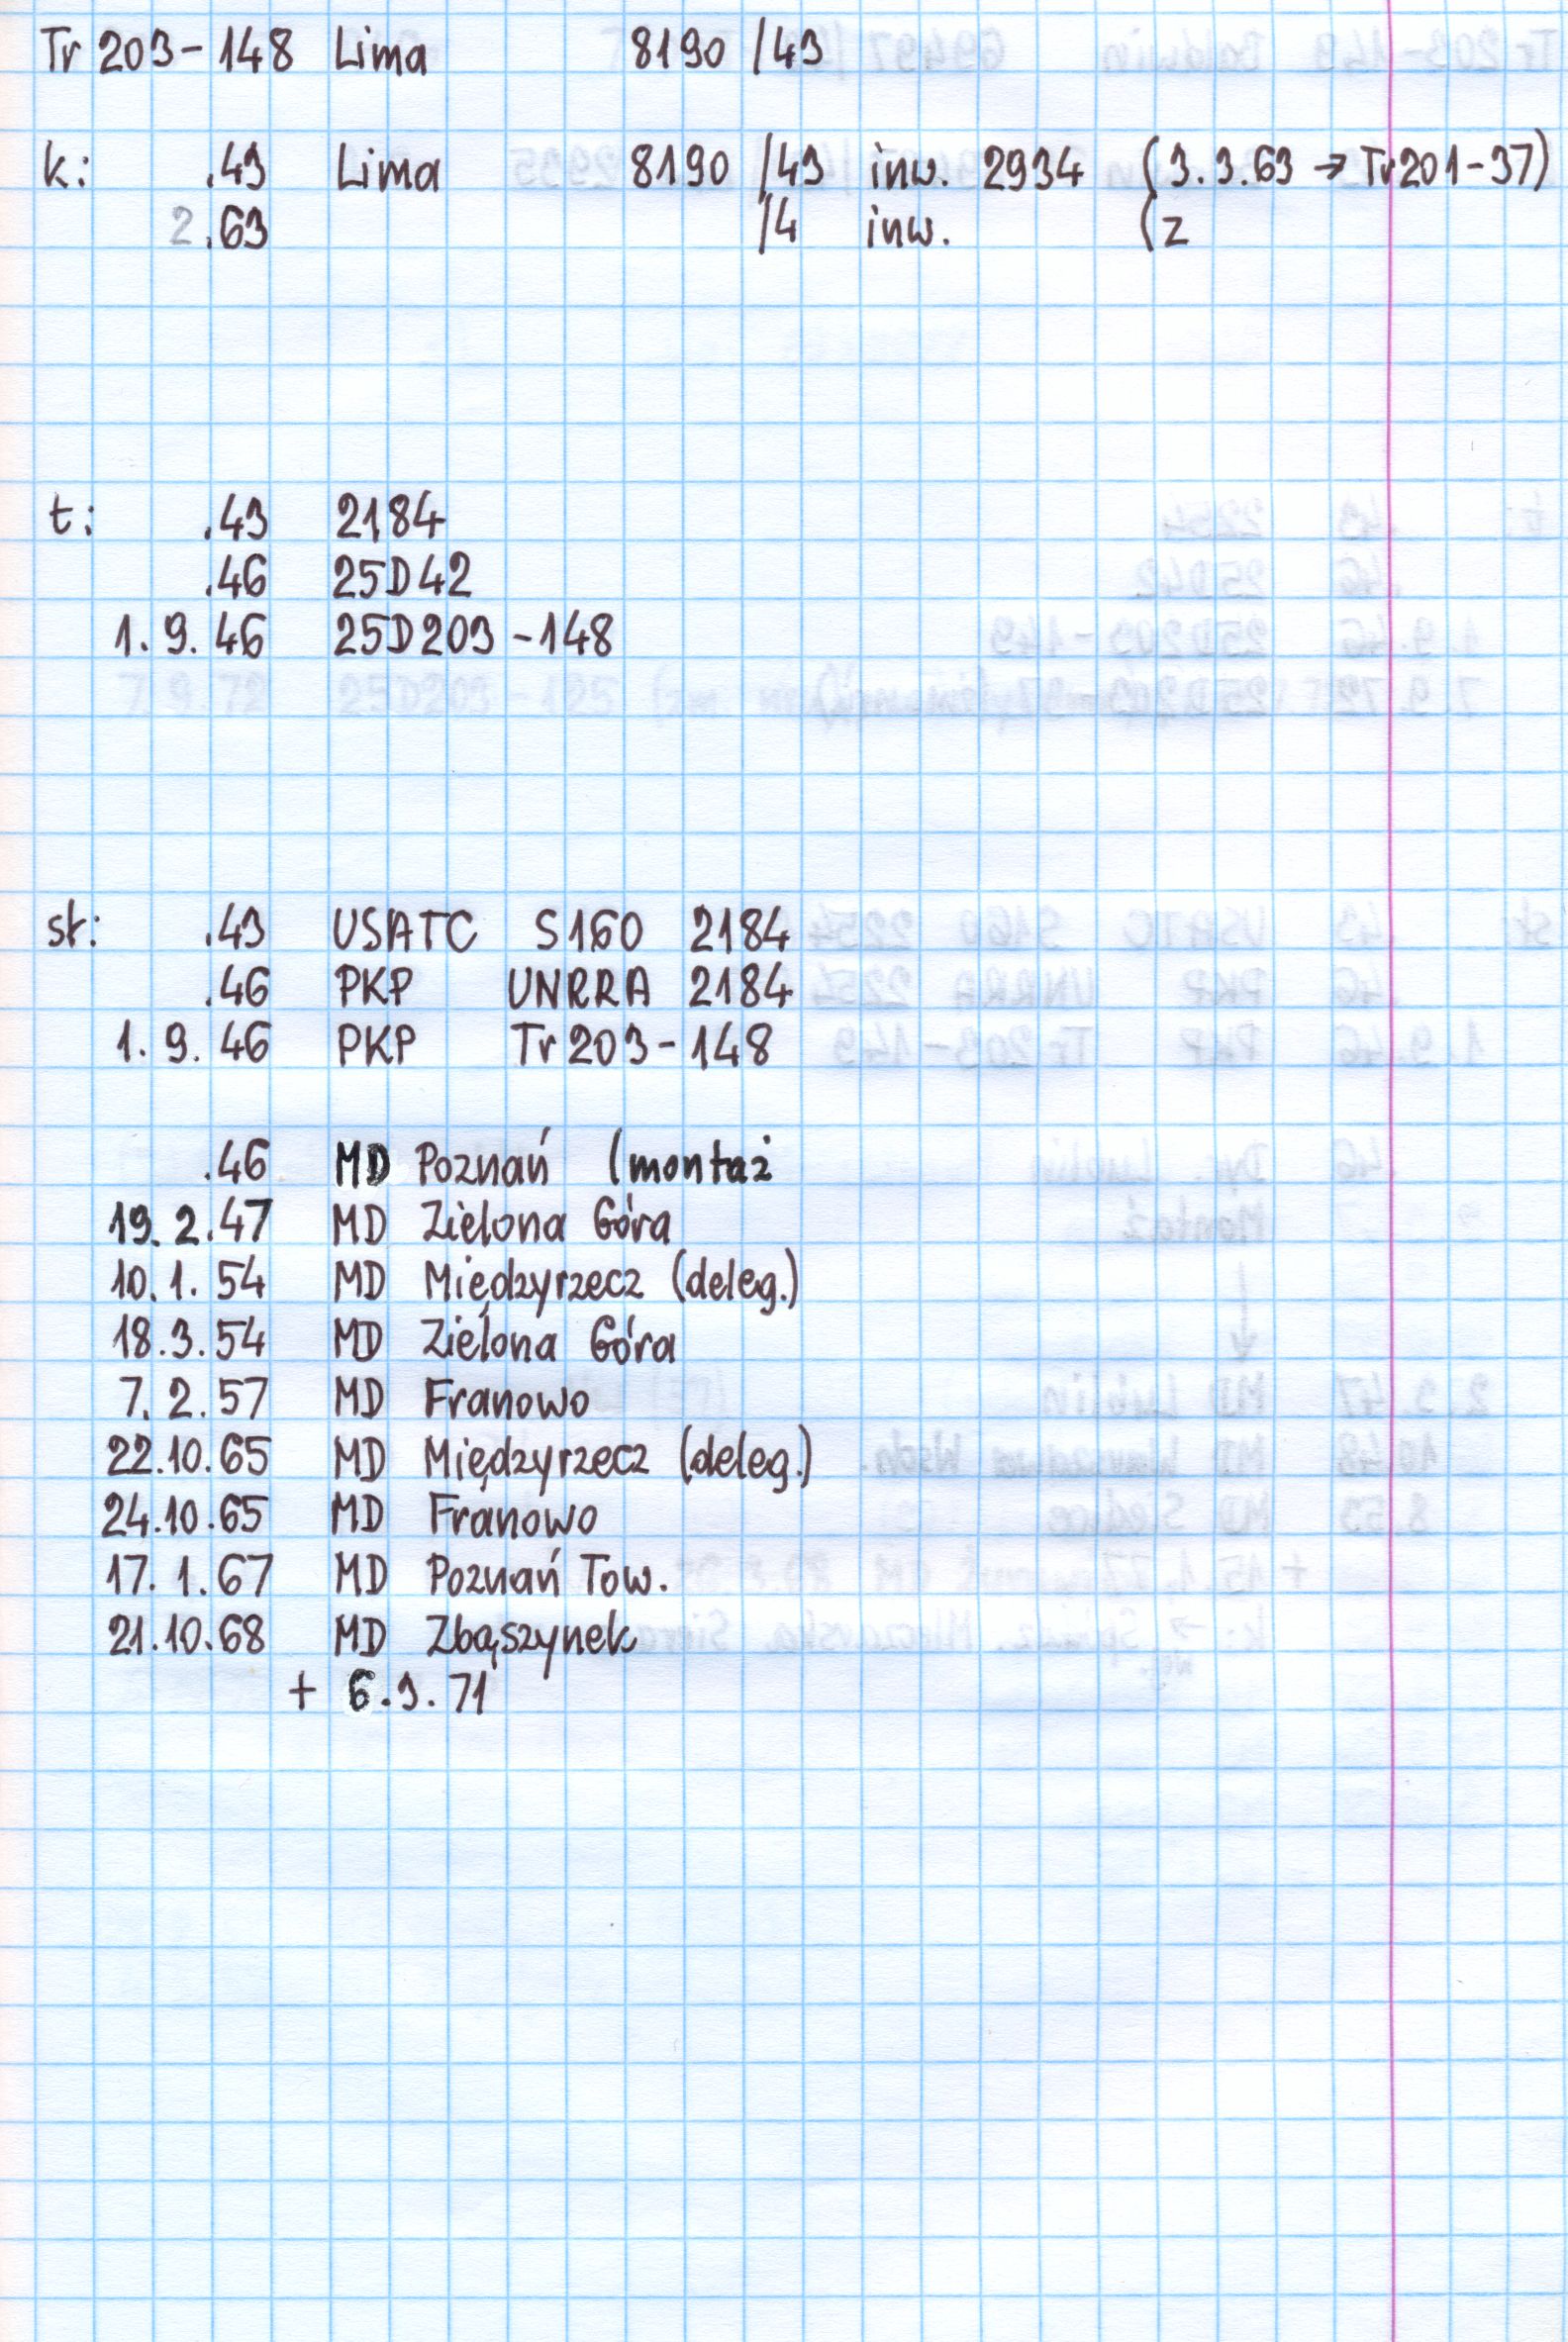 Tr 203-148 Lima 8190 /43
k: .43 Lima 8190 /43 inw. 2934 (3.3.63 → Tr201-37)
2.63 /4 inw. (z
t: .43 2184
.46 25D42
1. 9. 46 25D203-148
7.9.72 25D203-125 (zm
st: .43 USATC S160 2184
.46 PKP UNRRA 2184
1. 9. 46 PKP Tr203-148
.46 MD Poznań (montaż
19. 2. 47 MD Zielona Góra
10. 1. 54 MD Międzyrzecz (deleg.)
18. 3. 54 MD Zielona Góra
7. 2. 57 MD Franowo
22.10.65 MD Międzyrzecz (deleg.)
24.10.65 MD Franowo
17. 1. 67 MD Poznań Tow.
21.10.68 MD Zbąszynek
+ 6.9.71